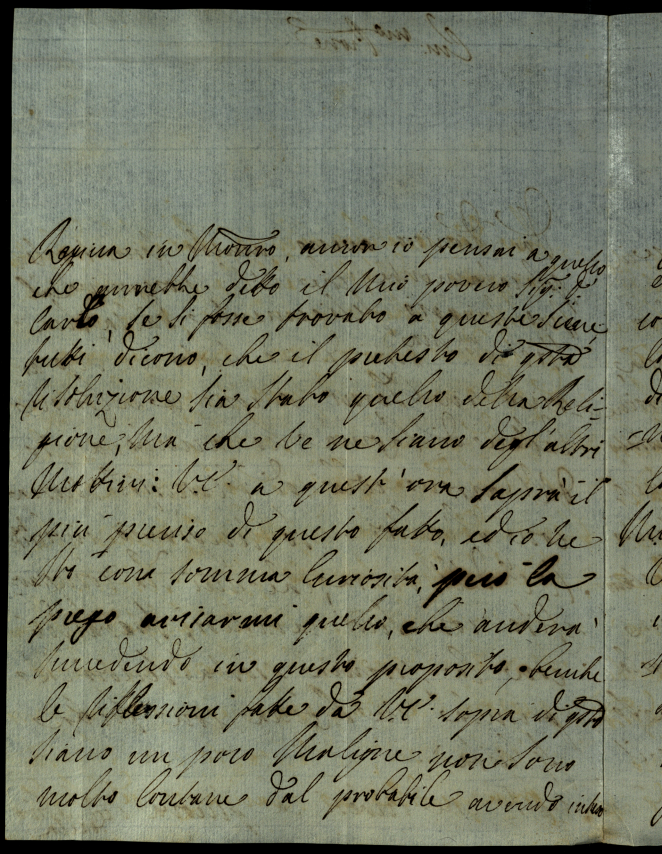 Regina in Mon.ro, ancor io pensai a quello
che averebbe detto il mio povero Sig.r D.
Carlo, se si fosse trovato a queste
tutti dicono, che il pretesto di q.sta
risoluzione sia stato quello della Reli-
gione, ma che ve ne siano degl'altri
Mottivi: V.E. a quest'ora saprà il
più preciso di questo fatto, ed io ne
sto con somma Curiosità, però la
prego avisarmi quello, che anderà
succedendo in questo proposito, benche
le riflessioni fatte da V.E. sopra di q.sto
siano un poco Maligne non sono
molto lontane dal probabile avendo